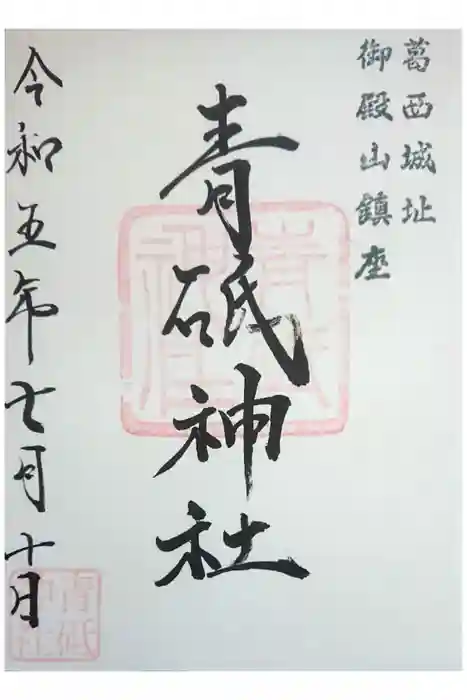 葛西城址
御殿山鎮座
青砥神社
令和五年七月十日
青砥神社
青砥神社